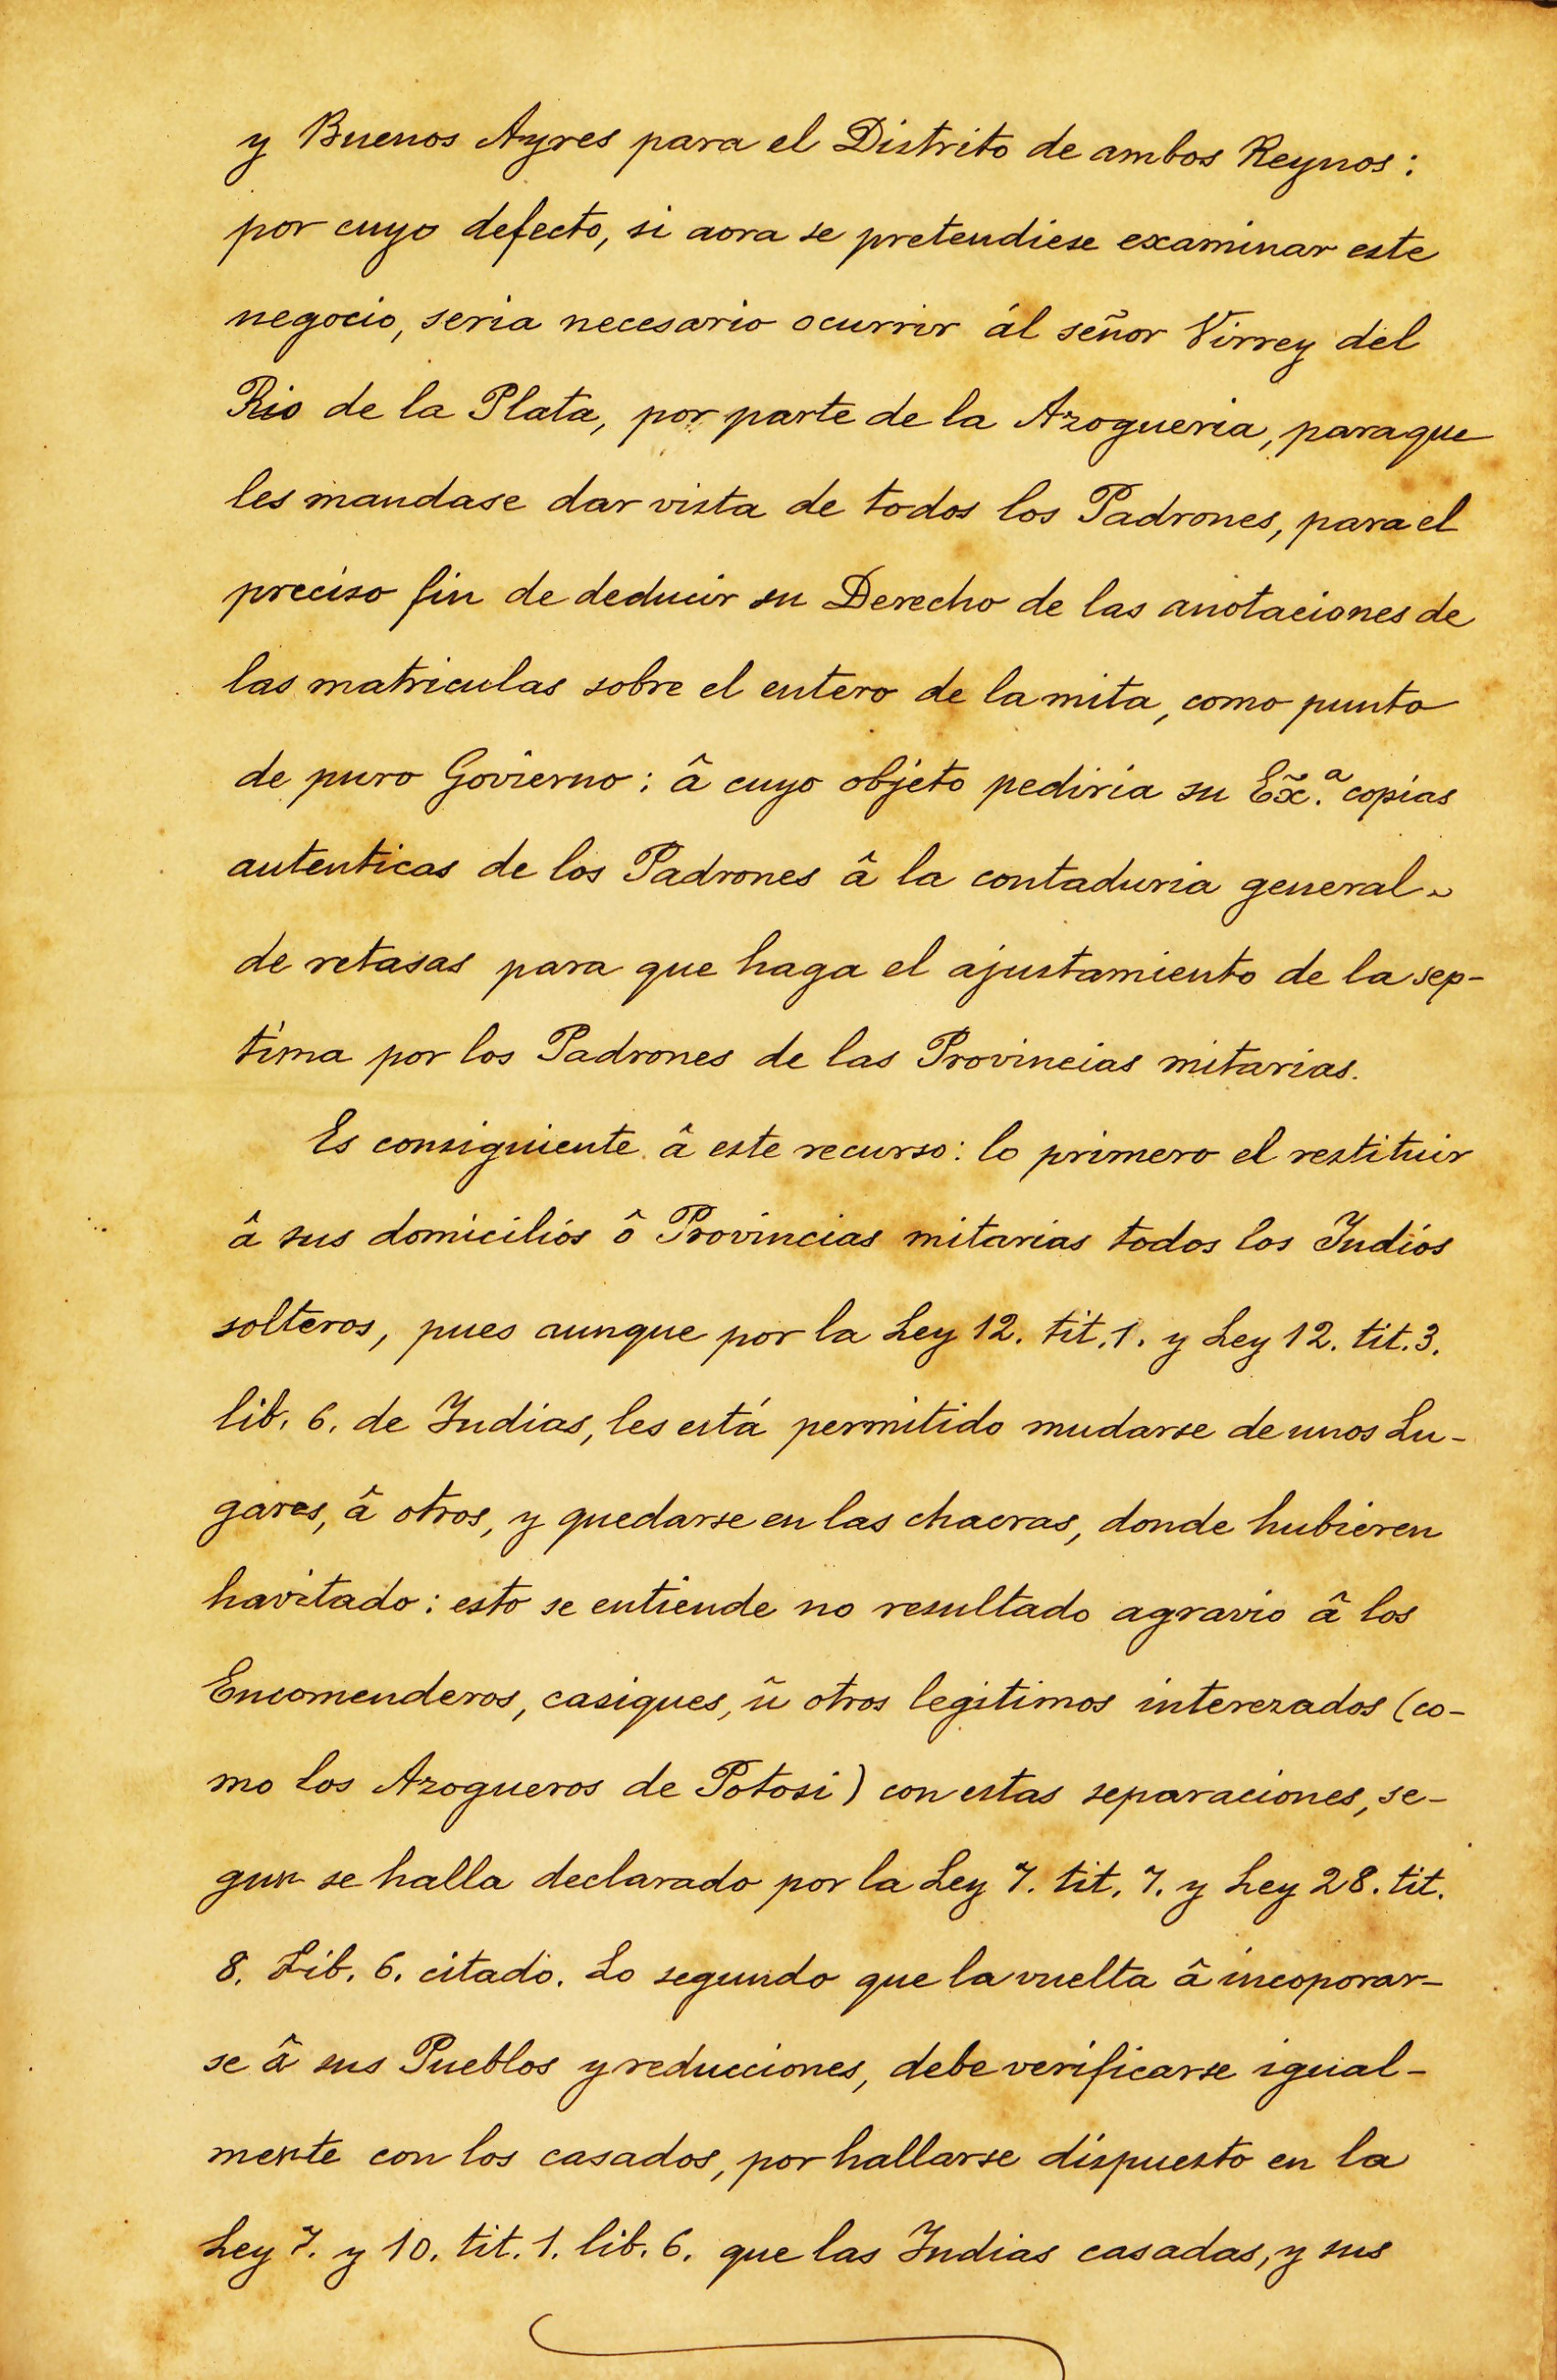 y Buenos Ayres para el Distrito de ambos Reynos:
por cuyo defecto, si aora se pretendiese examinar este
negocio, seria necesario ocurrir ál señor Virrey del
Rio de la Plata, por parte de la Azogueria, paraque
les mandase dar vista de todos los Padrones, para el
preciso fin de deducir su Derecho de las anotaciones de
las matriculas sobre el entero de la mita, como punto
de puro Govierno: â cuyo objeto pediria su Ex̃.ª copias
autenticas de los Padrones â la contaduria general
de retasas para que haga el ajustamiento de la sep-
tima por los Padrones de las Provincias mitarias.
Es consiguiente â este recurso: lo primero el restituir
â sus domicilios ô Provincias mitarias todos los Indios
solteros, pues aunque por la Ley 12. tit. 1. y Ley 12. tit. 3.
lib. 6. de Indias, les está permitido mudarse de unos Lu-
gares, â otros, y quedarse en las chacras, donde hubieren
havitado: esto se entiende no resultado agravio â los
Encomenderos, casiques, û otros legitimos interezados (co-
mo los Azogueros de Potosi) con estas separaciones, se-
gun se halla declarado por la Ley 7. tit. 7. y Ley 28. tit.
8. Lib. 6. citado. Lo segundo que la vuelta â incoporar-
se â sus Pueblos y reducciones, debe verificarse igual-
mente con los casados, por hallarse dispuesto en la
Ley 7. y 10. tit. 1. lib. 6. que las Indias casadas, y sus